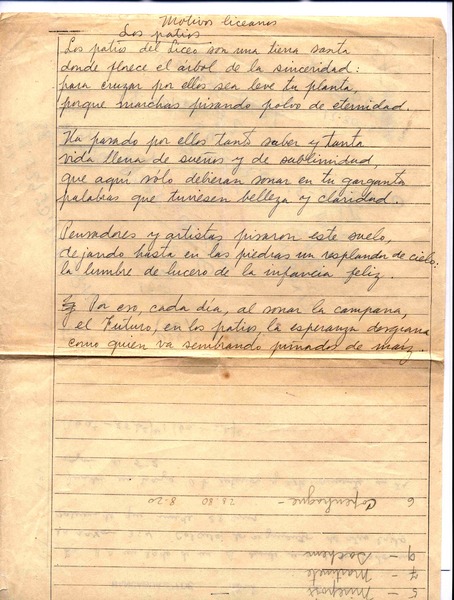 Motivos liceanos
Los patios
Los patios del Liceo son una tierra santa
donde florece el árbol de la sinceridad:
para cruzar por ellos sea leve tu planta,
porque marchas pisando polvo de eternidad.
Ha pasado por ellos tanto saber y tanta
vida llena de sueños y de sublimidad,
que aquí sólo debieran sonar en tu garganta
palabras que tuviesen belleza y claridad.
Pensadores y artistas pisaron este suelo,
dejando hasta en las piedras un resplandor de cielo:
la lumbre de lucero de la infancia feliz.
Por eso, cada día, al sonar la campana,
el Futuro, en los patios, la esperanza desgrana
como quien va sembrando puñados de maíz.
6 Copenhague - 28.80 8-20
9 -
7 -
5 -